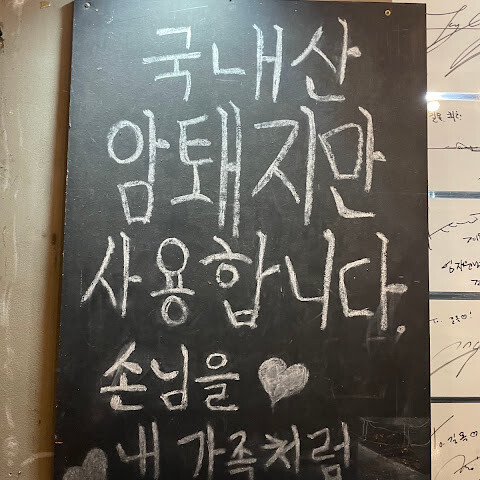 국내산
암퇘지만
사용합니다.
손님을
내 가족처럼